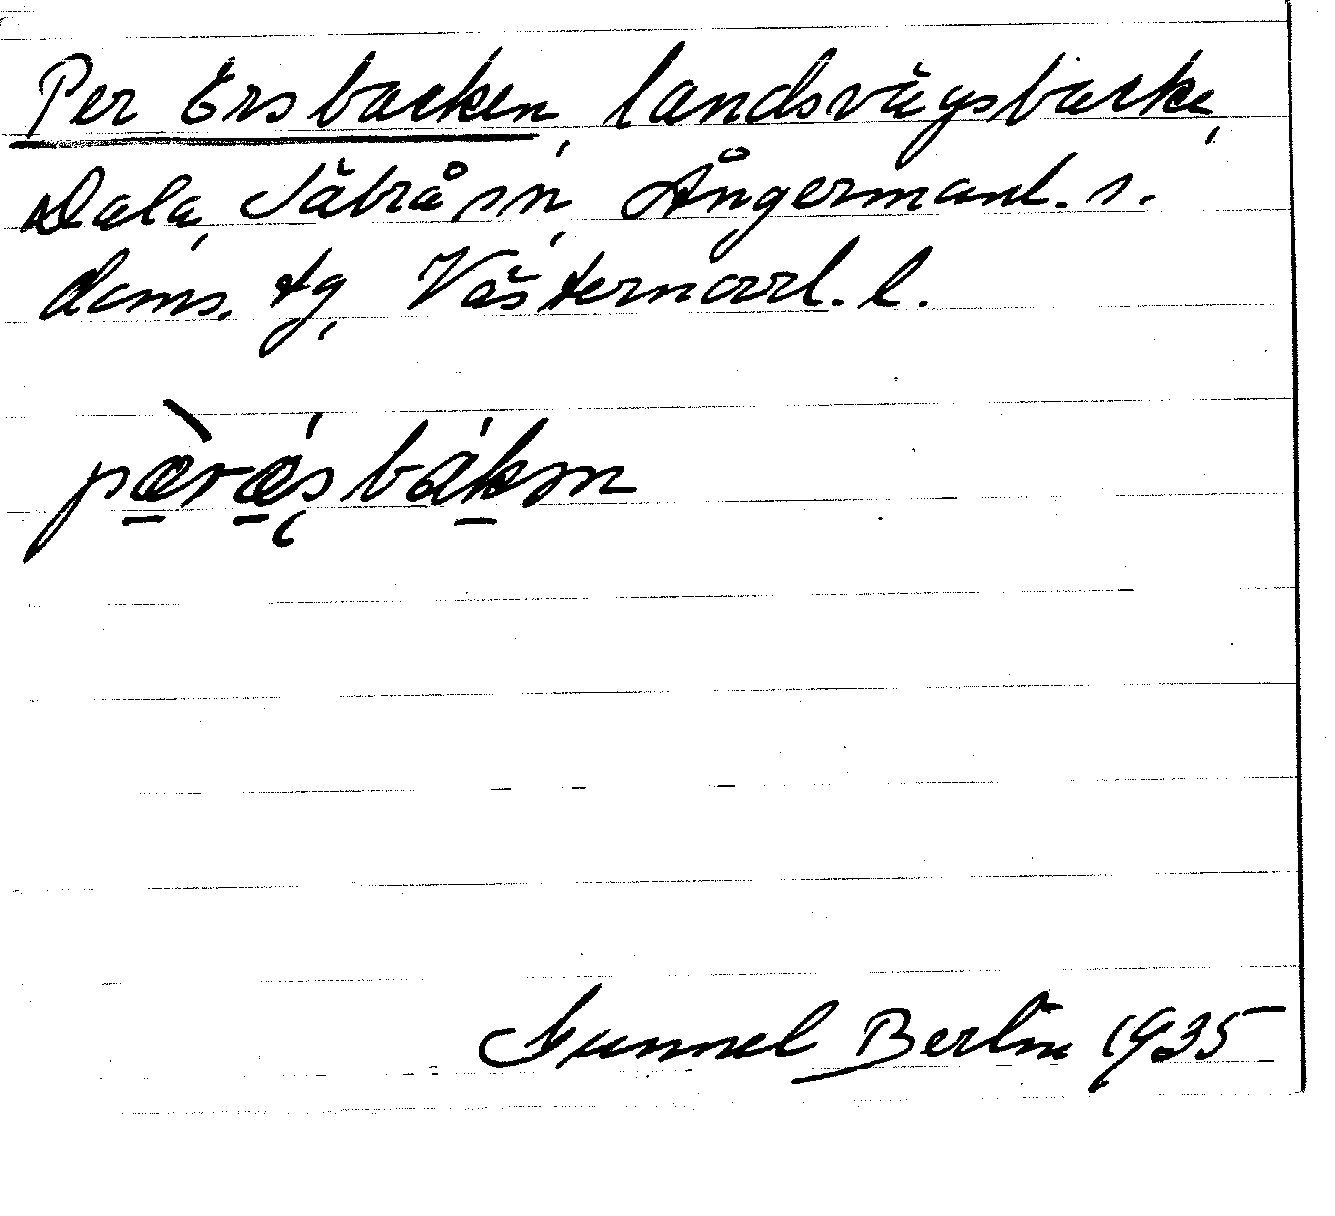 Per Ersbacken, landsvägsbacke,
Dala, Säbrå sn, Ångermanl. s.
doms. tg, Västernorrl. l.
pæ̀ræ̀s bákɱ
Gunnel Berlin 1935